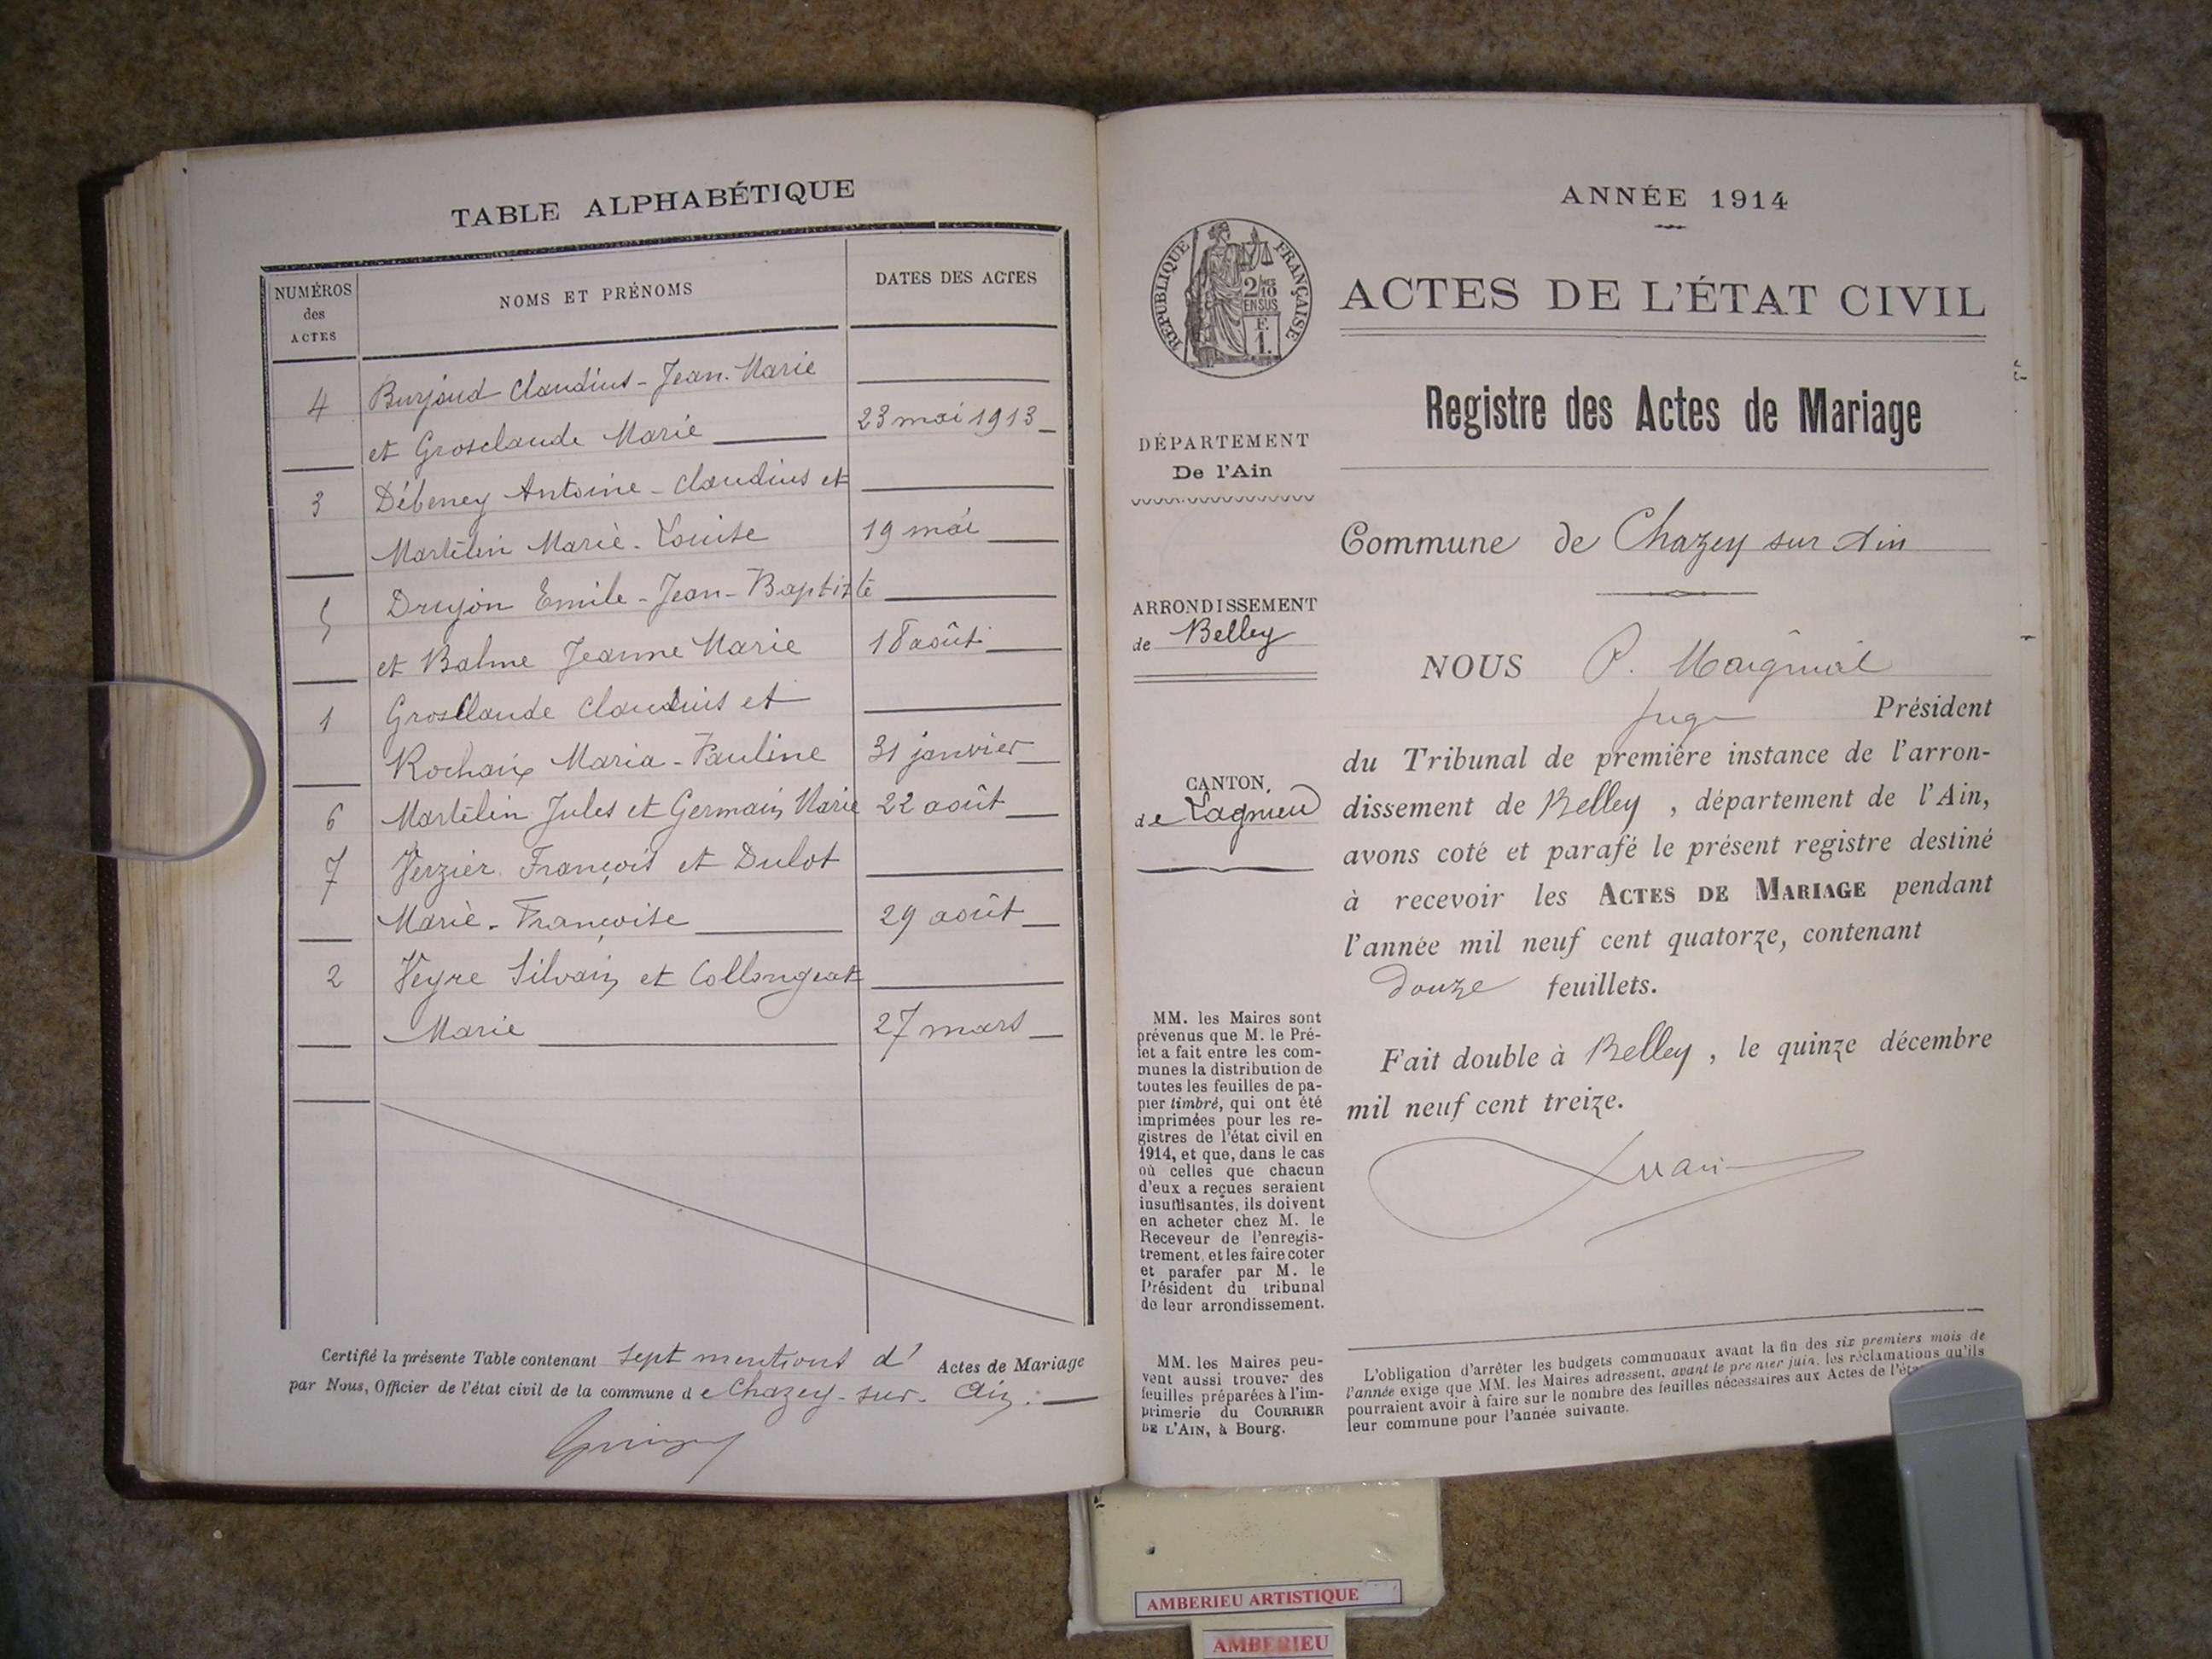 TABLE ALPHABÉTIQUE
NUMÉROS
des
ACTES
NOMS ET PRÉNOMS
DATES DES ACTES
4 Burjoud Claudius-Jean-Marie
et Grosclaude Marie 23 mai 1913
3 Débeney Antoine-Claudius et
Martelin Marie-Louise 19 mai
5 Drujon Emile-Jean-Baptiste
et Balme Jeanne Marie 18 août
1 Grosclaude Claudius et
Rochaix Maria-Pauline 31 janvier
6 Martelin Jules et Germain Marie 22 août
7 Verzier François et Dulot
Marie-Françoise 29 août
2 Veyre Silvain et Collongeat
Marie 27 mars
Certifié la présente Table contenant sept mentions d' Actes de Mariage
par Nous, Officier de l'état civil de la commune de Chazey-sur-Ain.
ANNÉE 1914
RÉPUBLIQUE FRANÇAISE
2/10
EN SUS
F.
1.
ACTES DE L'ÉTAT CIVIL
Registre des Actes de Mariage
DÉPARTEMENT
De l'Ain
ARRONDISSEMENT
de Belley
CANTON,
de Lagnieu
MM. les Maires sont
prévenus que M. le Pré-
fet a fait entre les com-
munes la distribution de
toutes les feuilles de pa-
pier timbré, qui ont été
imprimées pour les re-
gistres de l'état civil en
1914, et que, dans le cas
où celles que chacun
d'eux a reçues seraient
insuffisantes, ils doivent
en acheter chez M. le
Receveur de l'enregis-
trement, et les faire coter
et parafer par M. le
Président du tribunal
de leur arrondissement.
MM. les Maires peu-
vent aussi trouver des
feuilles préparées à l'im-
primerie du COURRIER
DE L'AIN, à Bourg.
Commune de Chazey sur Ain
NOUS P.
Juge Président
du Tribunal de première instance de l'arron-
dissement de Belley, département de l'Ain,
avons coté et parafé le présent registre destiné
à recevoir les ACTES DE MARIAGE pendant
l'année mil neuf cent quatorze, contenant
Douze feuillets.
Fait double à Belley, le quinze décembre
mil neuf cent treize.
L'obligation d'arrêter les budgets communaux avant la fin des six premiers mois de
l'année exige que MM. les Maires adressent, avant le premier juin, les réclamations qu'ils
pourraient avoir à faire sur le nombre des feuilles nécessaires aux Actes de l'état
leur commune pour l'année suivante.
AMBERIEU ARTISTIQUE
AMBERIEU